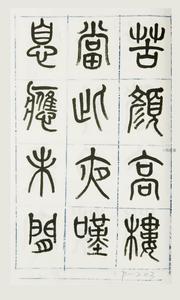 苦顏高樓
當此夜嘆
息應未閒